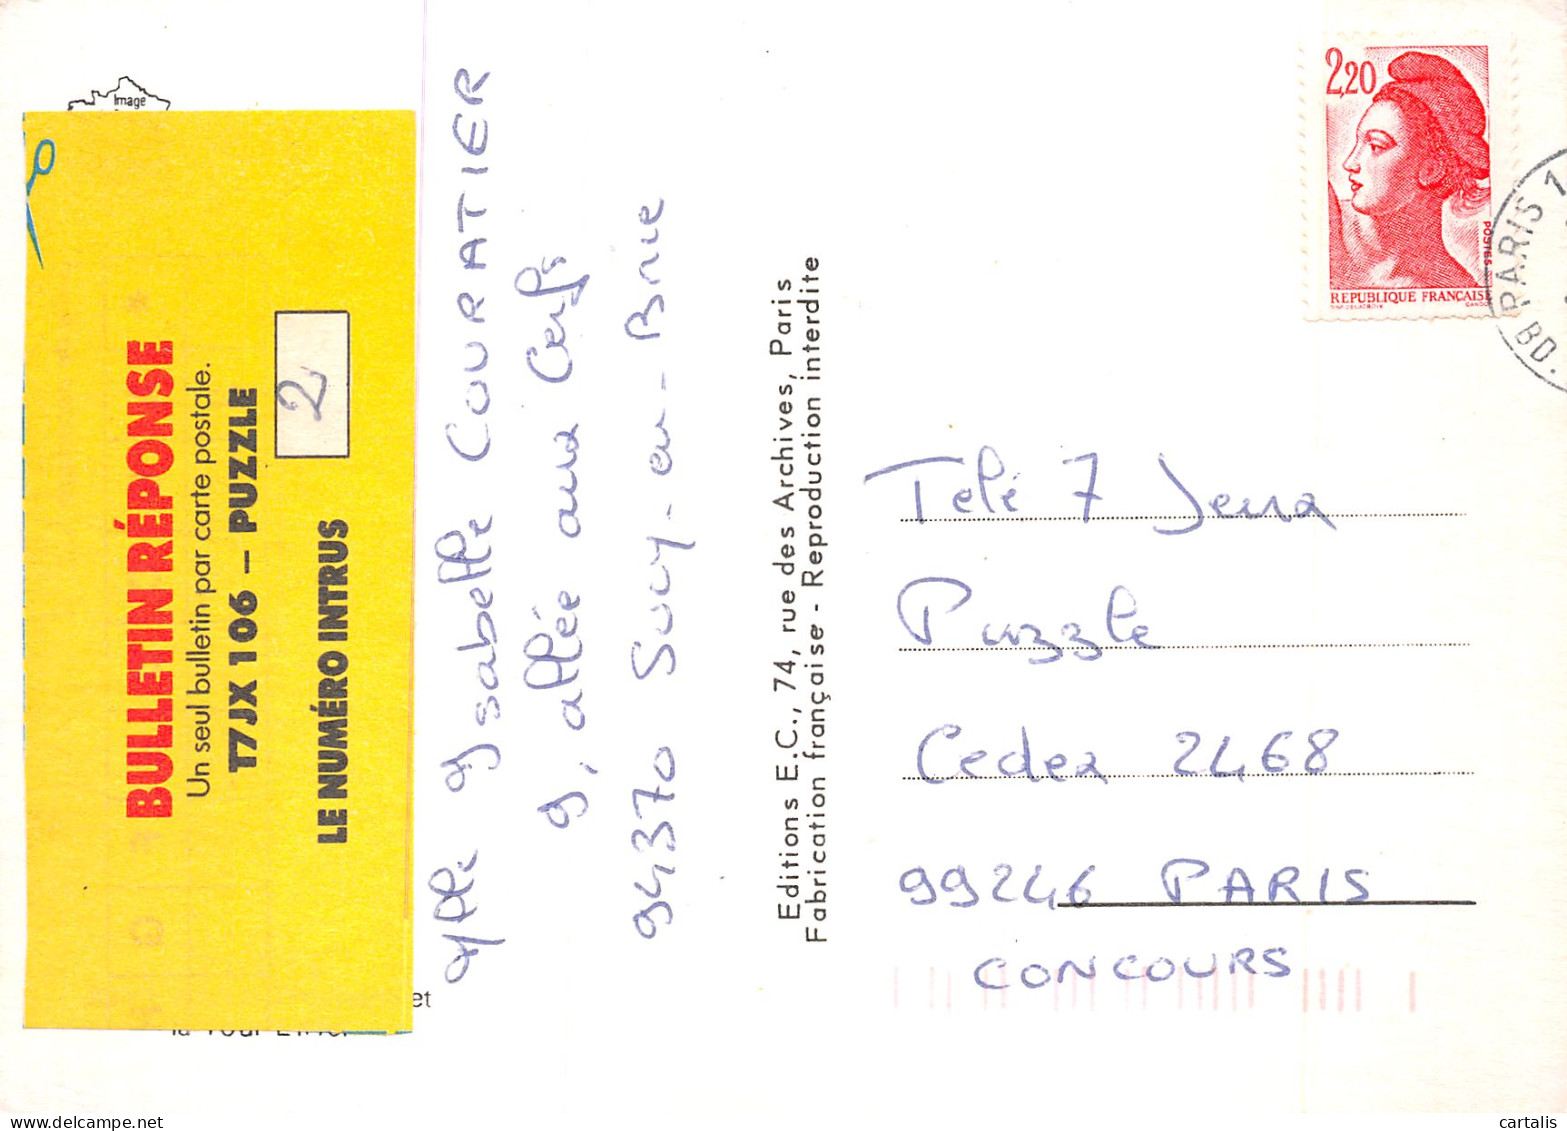 Image
BULLETIN RÉPONSE
Un seul bulletin par carte postale.
T7JX106 – PUZZLE
2
LE NUMÉRO INTRUS
et
la Tour Eiffel
Mlle Isabelle COURATIER
9, allée aux Cerfs
94370 Sucy-en-Brie
Editions E.C., 74, rue des Archives, Paris
Fabrication française - Reproduction interdite
2,20
POSTES
REPUBLIQUE FRANÇAISE
PARIS 1
BD.
Télé 7 Jeux
Puzzle
Cedex 2468
99246 PARIS
CONCOURS
cartalis
www.delcampe.net